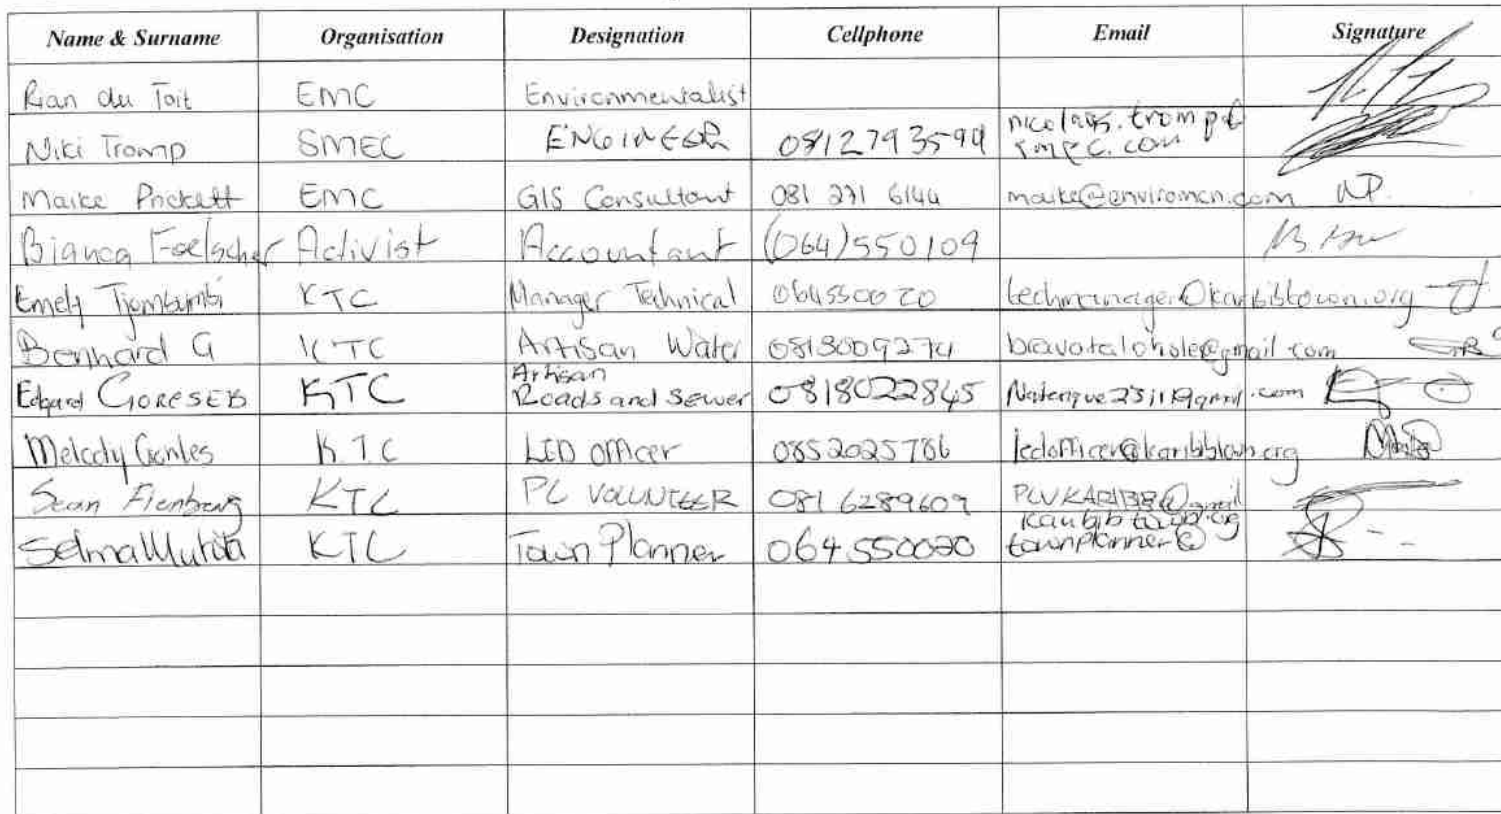 Name & Surname Organisation Designation Cellphone Email Signature
Rian du Toit EMC Environmentalist
Niki Tromp SMEC ENGINEER 0812793599 nicolaas.tromp@
smec.com
Maike Prickett EMC GIS Consultant 081 271 6144 maike@enviromcn.com MP.
Bianca Foelscher Activist Accountant (064)550109
Emely Tjombumbi KTC Manager Technical 064550020 techmanager@karibibtown.org
Benhard G KTC Artisan Water 0813009274 bravotalohole@gmail.com
Artisan
Edgard GORESEB KTC Roads and Sewer 0818022845 @gmail.com
Melody KTC LED officer 0852025786 ledofficer@karibibtown.org
Sean KTC PC VOLUNTEER 081 6289609 PCVKARIBIB@gmail
karibibtown.org
Selma KTC Town Planner 064 550020 townplanner@